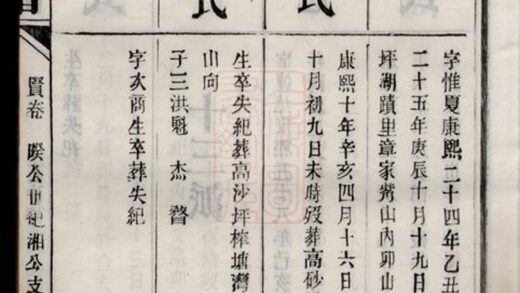 字惟夏康熙二十四年乙丑
二十五年庚辰十月十九日
坪湖蹟里章家山內卯山
氏
康熙十年辛亥四月十六日
十月初九日未時歿葬高砂
氏
生卒失紀葬高沙坪榨塘灣
山向
子三洪魁 杰 瞽
字次商生卒葬失紀
賢卷 公世紀湘公支